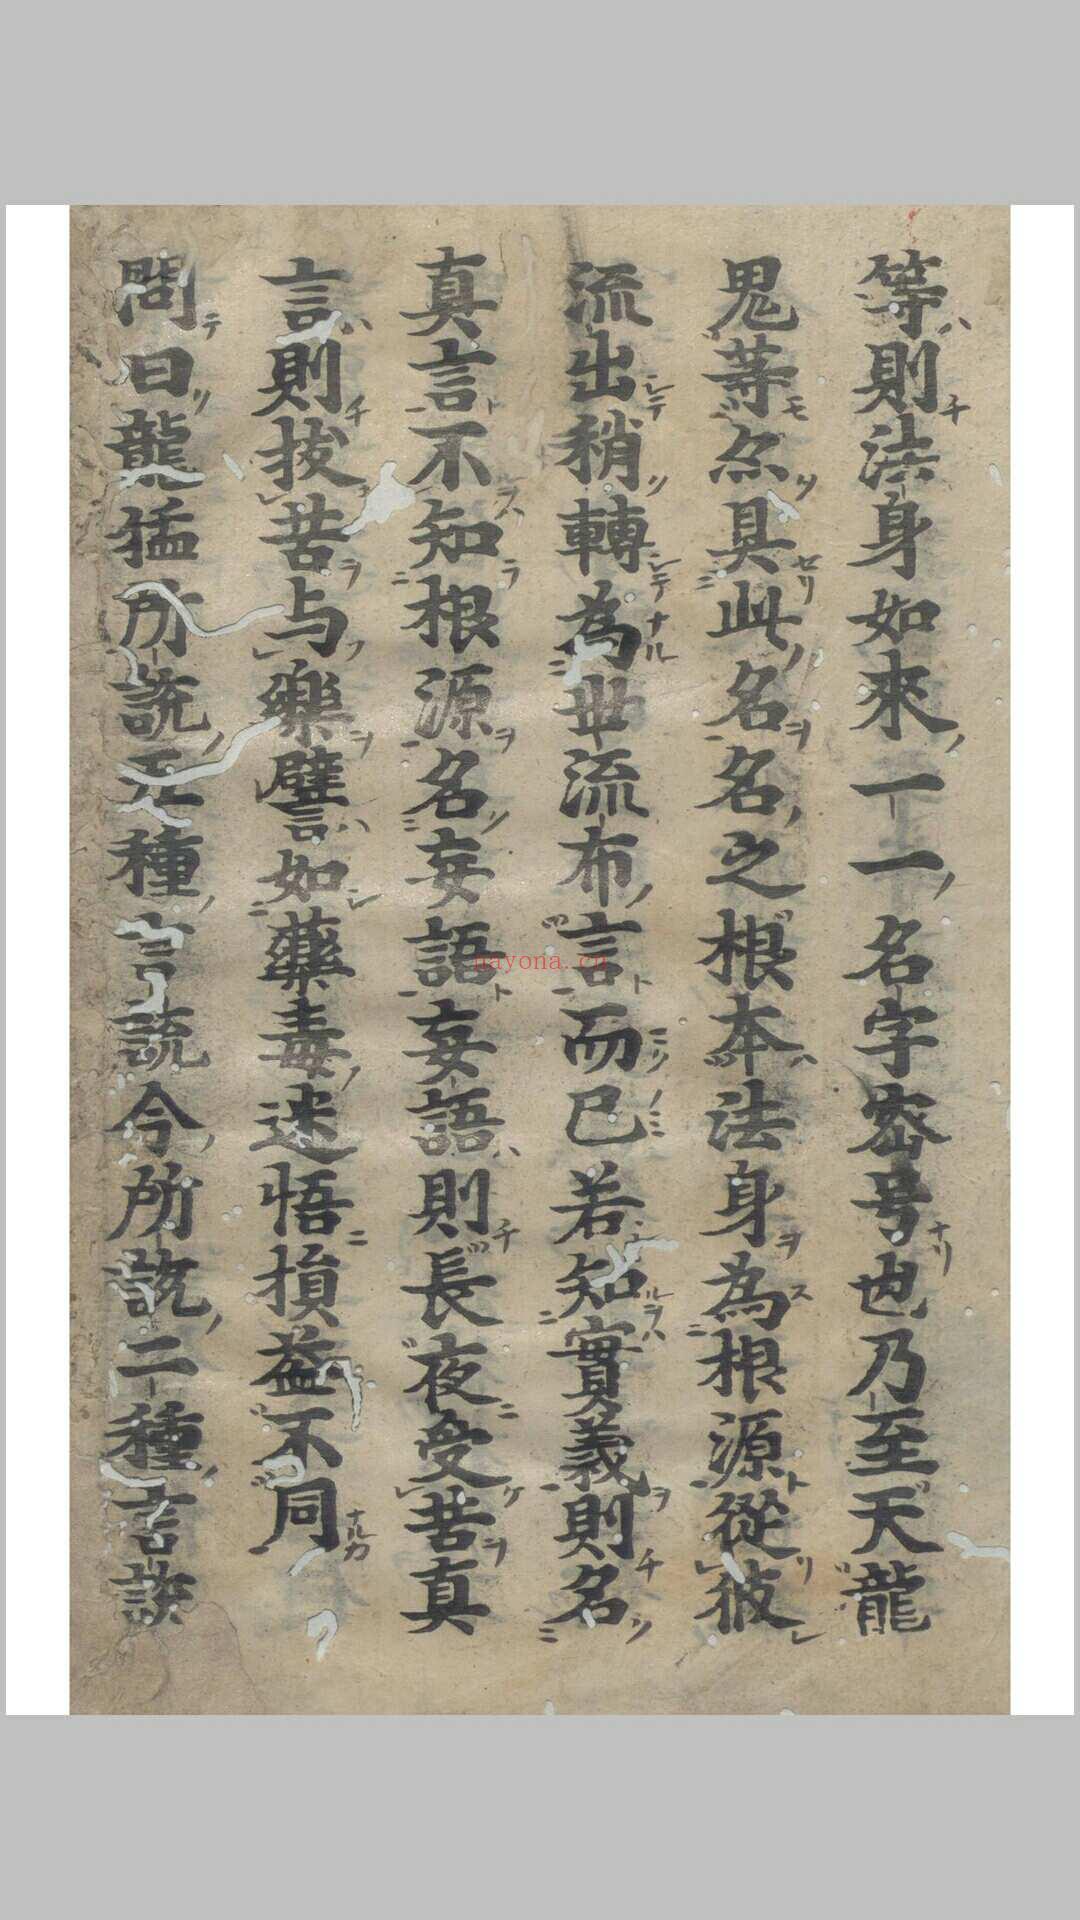 等則法身如來一一名字密号也乃至天龍
鬼等尒具此名名之根本法身為根源從彼
流出稍轉為世流布言而已若知實義則名
真言不知根源名妄語妄語則長夜受苦真
言則拔苦与樂譬如藥毒迷悟損益不同
問曰龍猛所説五種言説今所説二種言説
nayona.cn